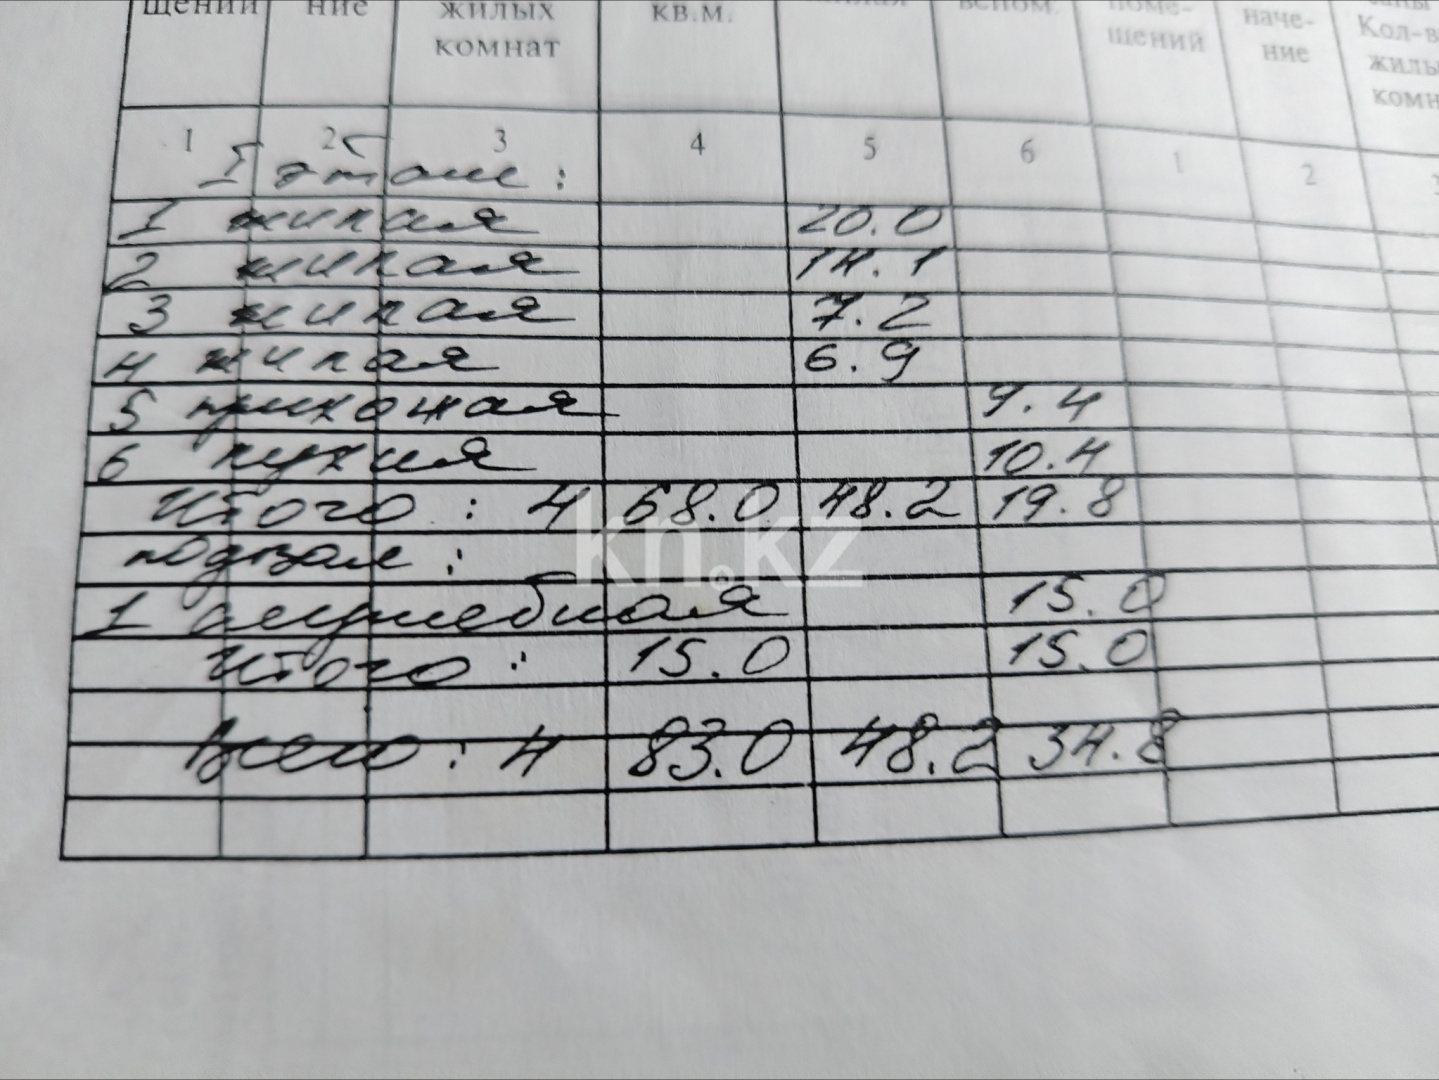 щений ние жилых комнат кв.м. вспом. поме-щений наче-ние Кол-в жилы комн
1 2 3 4 5 6 1 2
I этаж :
1 жилая 20.0
2 жилая 14.1
3 жилая 7.2
4 жилая 6.9
5 прихожая 9.4
6 кухня 10.4
Итого : 4 68.0 48.2 19.8
kn.kz
подвал :
1 служебная 15.0
Итого : 15.0 15.0
Всего : 4 83.0 48.2 34.8